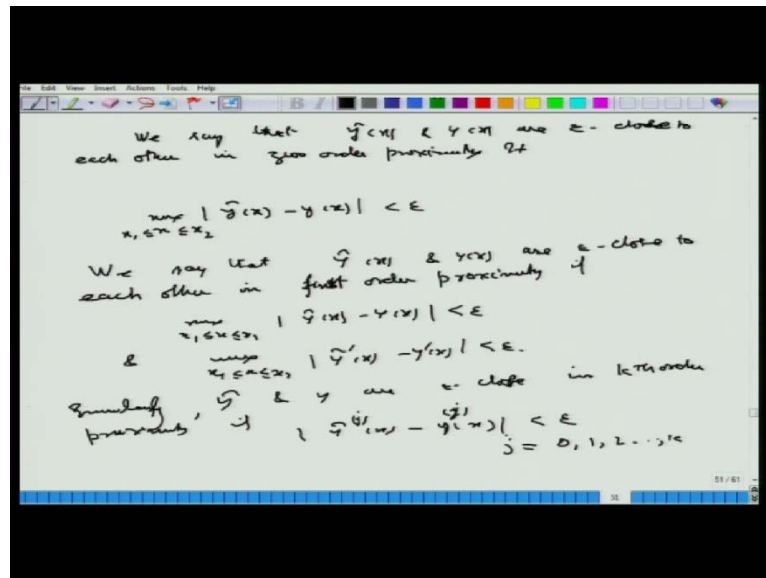 File Edit View Insert Actions Tools Help
We say that ŷ(x) & y(x) are ε-close to
each other in zero order proximity if
max | ŷ(x) - y(x) | < ε
x₁ ≤ x ≤ x₂
We say that ŷ(x) & y(x) are ε-close to
each other in first order proximity if
max | ŷ(x) - y(x) | < ε
x₁ ≤ x ≤ x₂
& max | ŷ'(x) - y'(x) | < ε.
x₁ ≤ x ≤ x₂
Similarly, ŷ & y are ε-close in kth order
proximity if | ŷ⁽ʲ⁾(x) - y⁽ʲ⁾(x) | < ε
j = 0, 1, 2 ..., k
51 / 61
51